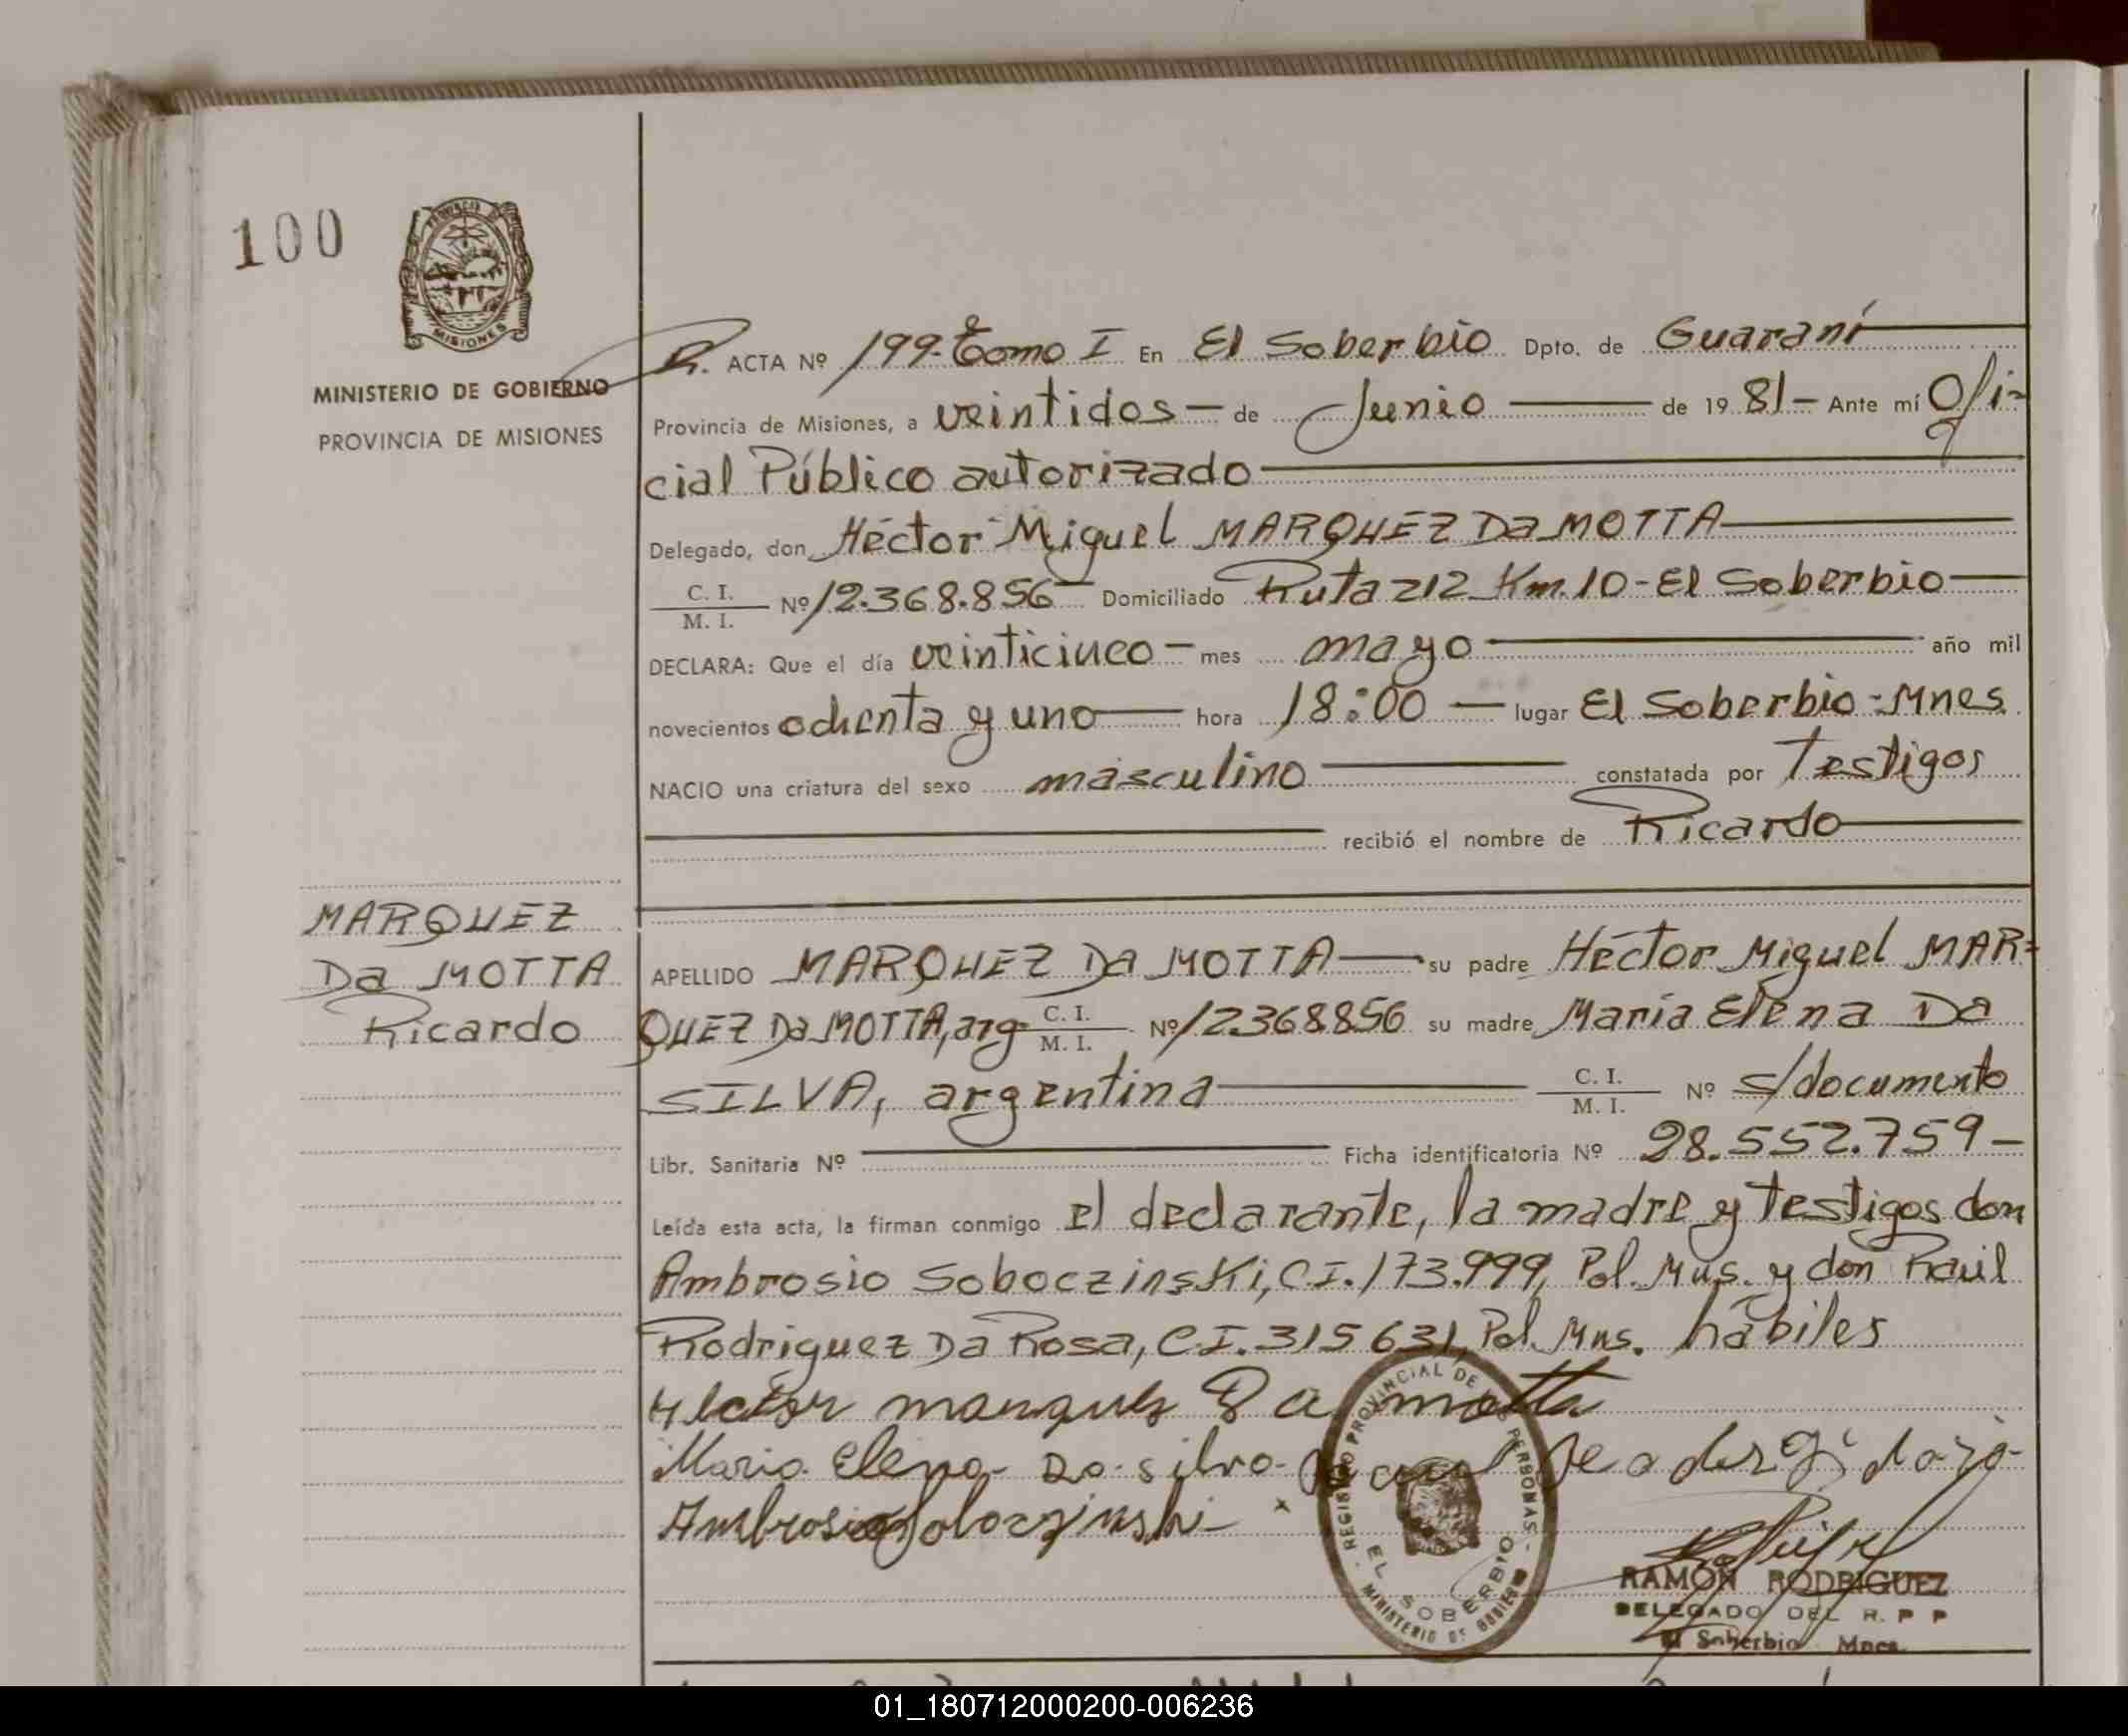 100
PROVINCIA DE
MISIONES
MINISTERIO DE GOBIERNO
PROVINCIA DE MISIONES
R. ACTA Nº 199- Tomo I En El Soberbio Dpto. de Guaraní
Provincia de Misiones, a veintidos - de Junio de 19 81- Ante mí Ofi-
cial Público autorizado
Delegado, don Héctor Miguel MARQUEZ Da MOTTA
C. I.
M. I. Nº 12.368.856 Domiciliado Ruta 212 Km. 10 - El Soberbio
DECLARA: Que el día veinticinco - mes mayo año mil
novecientos ochenta y uno hora 18:00 - lugar El Soberbio - Mnes
NACIO una criatura del sexo masculino constatada por Testigos
recibió el nombre de Ricardo
MARQUEZ
Da MOTTA
Ricardo
APELLIDO MARQUEZ Da MOTTA su padre Héctor Miguel MAR=
QUEZ Da MOTTA, arg C. I.
M. I. Nº 12368856 su madre María Elena Da
SILVA, argentina C. I.
M. I. Nº s/documento
Libr. Sanitaria Nº Ficha identificatoria Nº 28.552.759-
Leída esta acta, la firman conmigo el declarante, la madre y testigos don
Ambrosio Soboczinski, C.I. 173.999, Pol. Mns. y don Raúl
Rodriguez Da Rosa, C.I. 315631, Pol. Mns. hábiles
Hector marques Da motta
Maria Elena Da silva
Ambrosio Soboczinski
REGISTRO PROVINCIAL DE LAS PERSONAS
EL SOBERBIO
MINISTERIO DE GOBIERNO
RAMÓN RODRIGUEZ
DELEGADO DEL R. P P
El Soberbio Mnes.
01_180712000200-006236